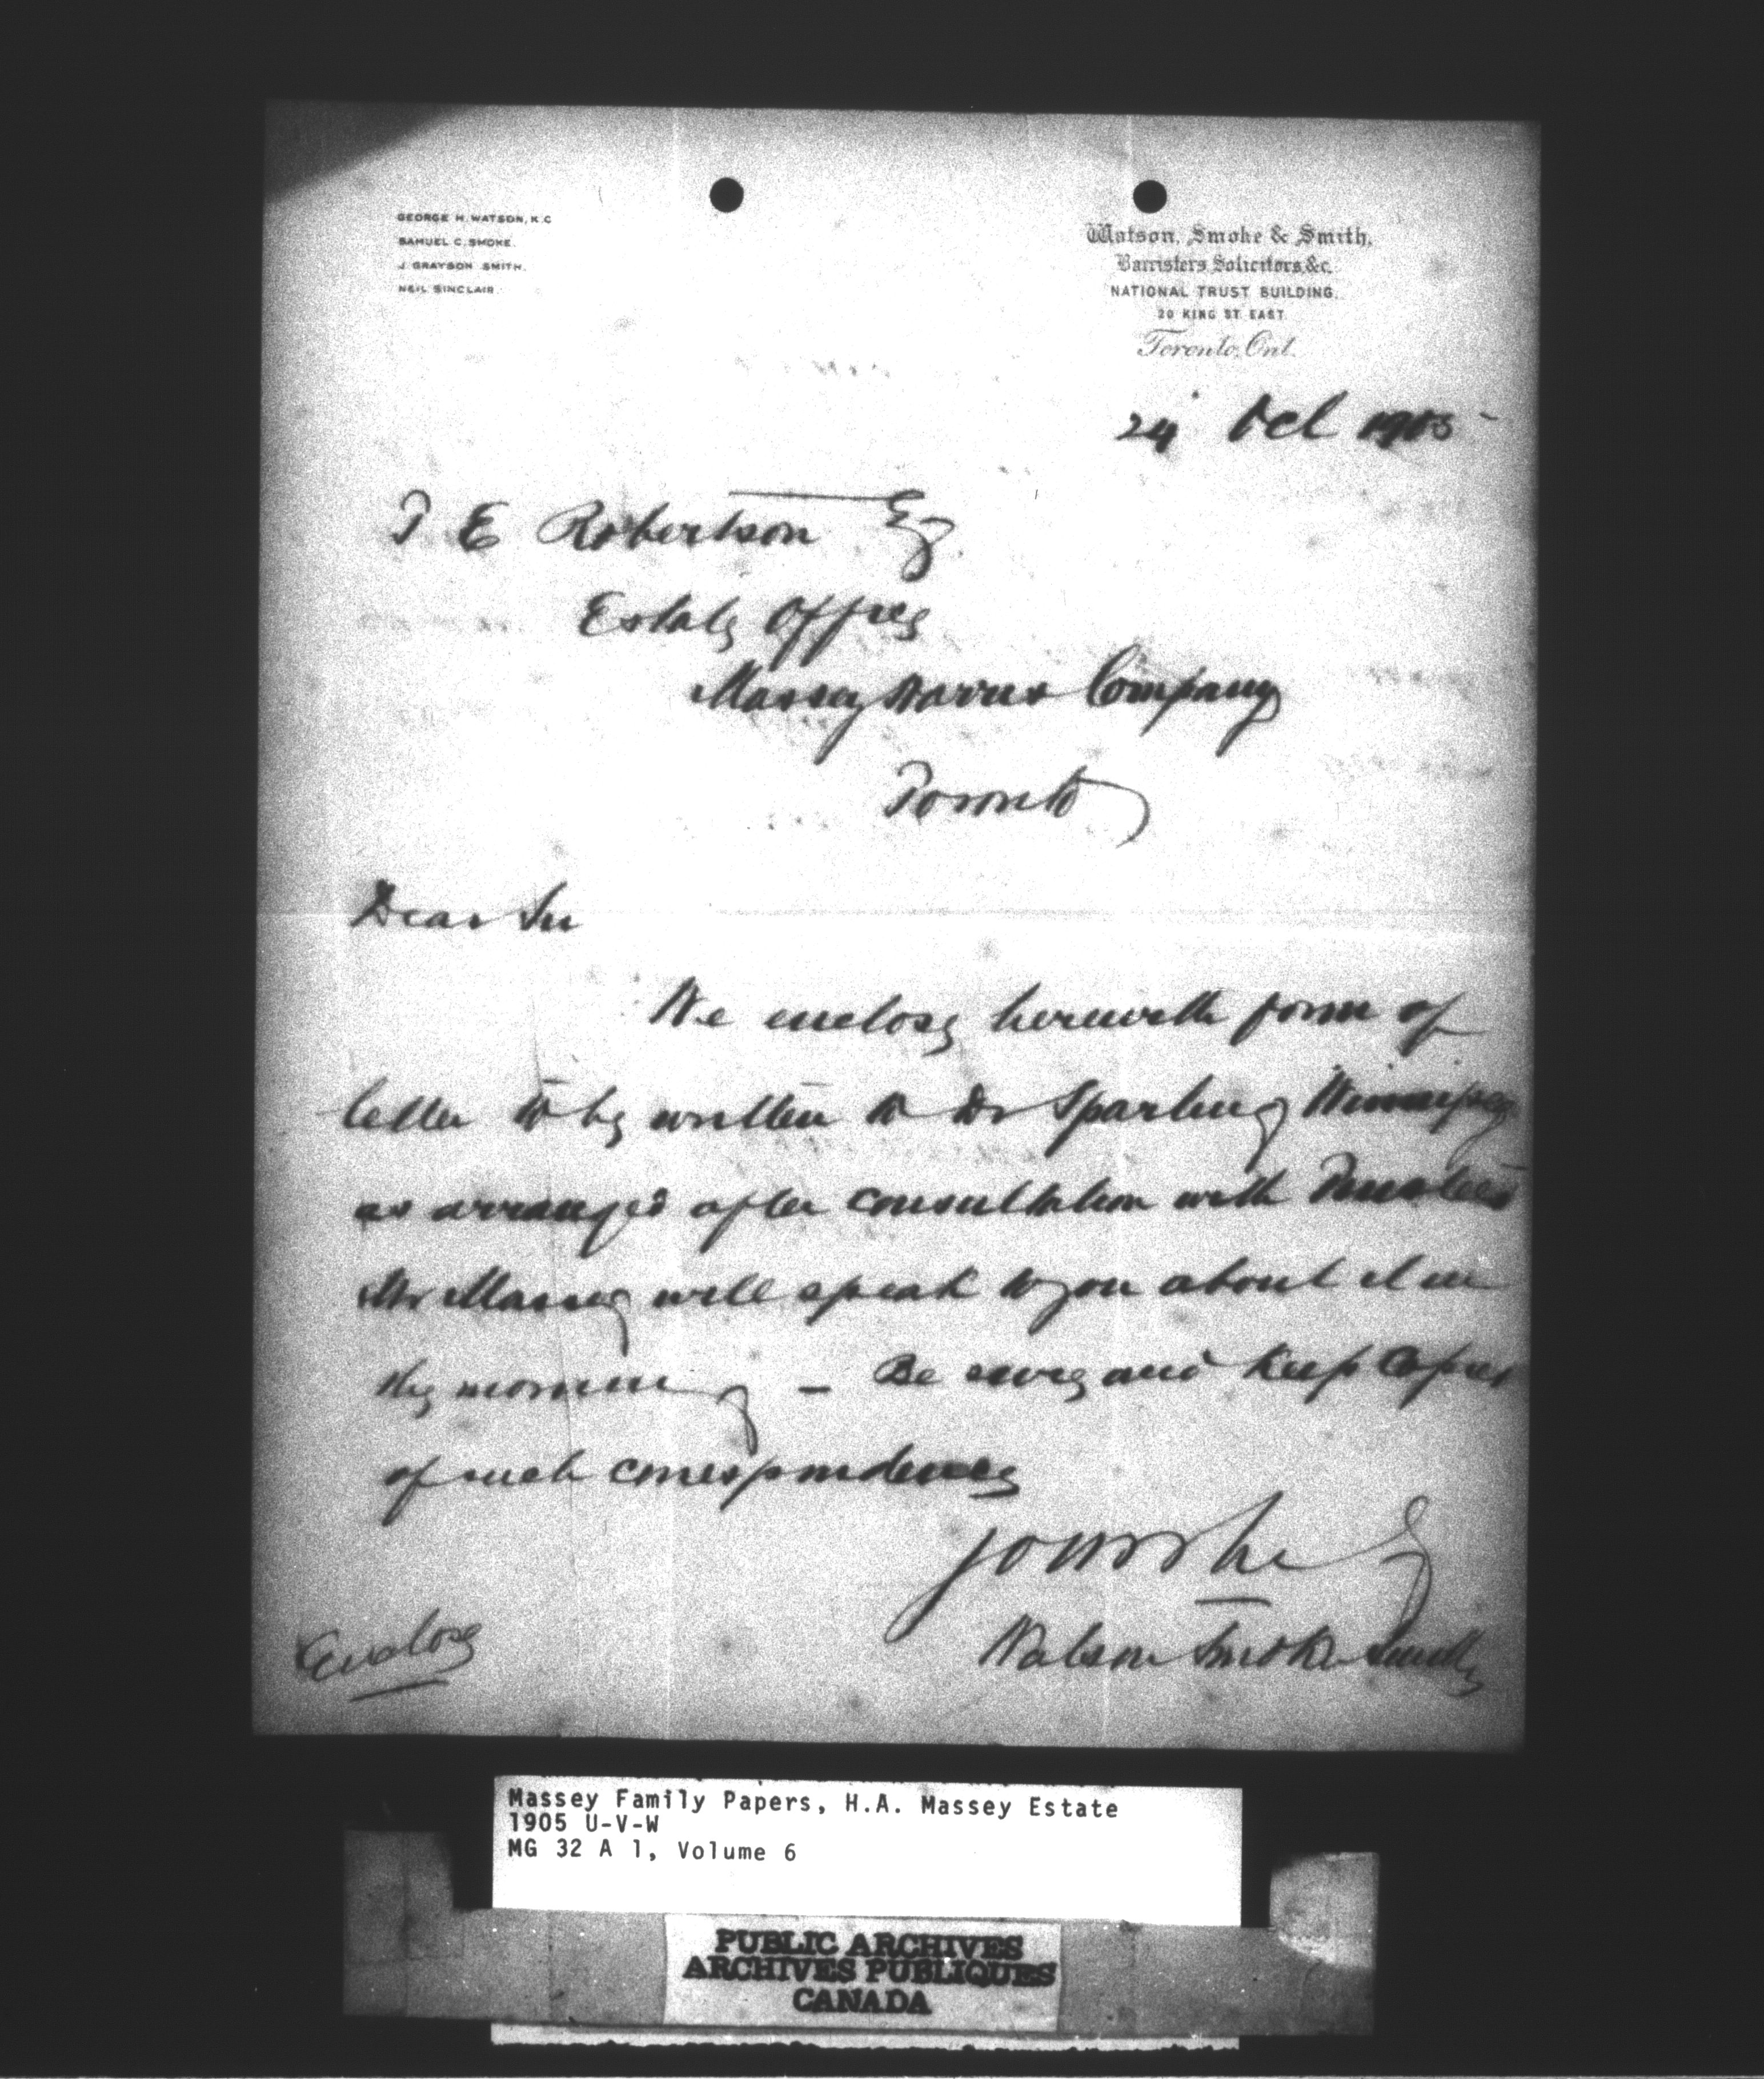 GEORGE H. WATSON, K.C
SAMUEL C. SMOKE.
J. GRAYSON SMITH.
NEIL SINCLAIR.
Watson, Smoke & Smith,
Barristers Solicitors &c.
NATIONAL TRUST BUILDING.
20 KING ST EAST
Toronto, Ont.
24 Oct 1905
T E Robertson Esq.
Estate Office
Massey Harris Company
Toronto
Dear Sir
We enclose herewith form of
letter to be written to Dr Sparling Winnipeg
as arranged after consultation with Trustees
Mr Massey will speak to you about it in
the morning – Be sure and keep copies
of such correspondence
Yours truly
Watson Smoke Smith
Enclose
Massey Family Papers, H.A. Massey Estate
1905 U-V-W
MG 32 A 1, Volume 6
PUBLIC ARCHIVES
ARCHIVES PUBLIQUES
CANADA